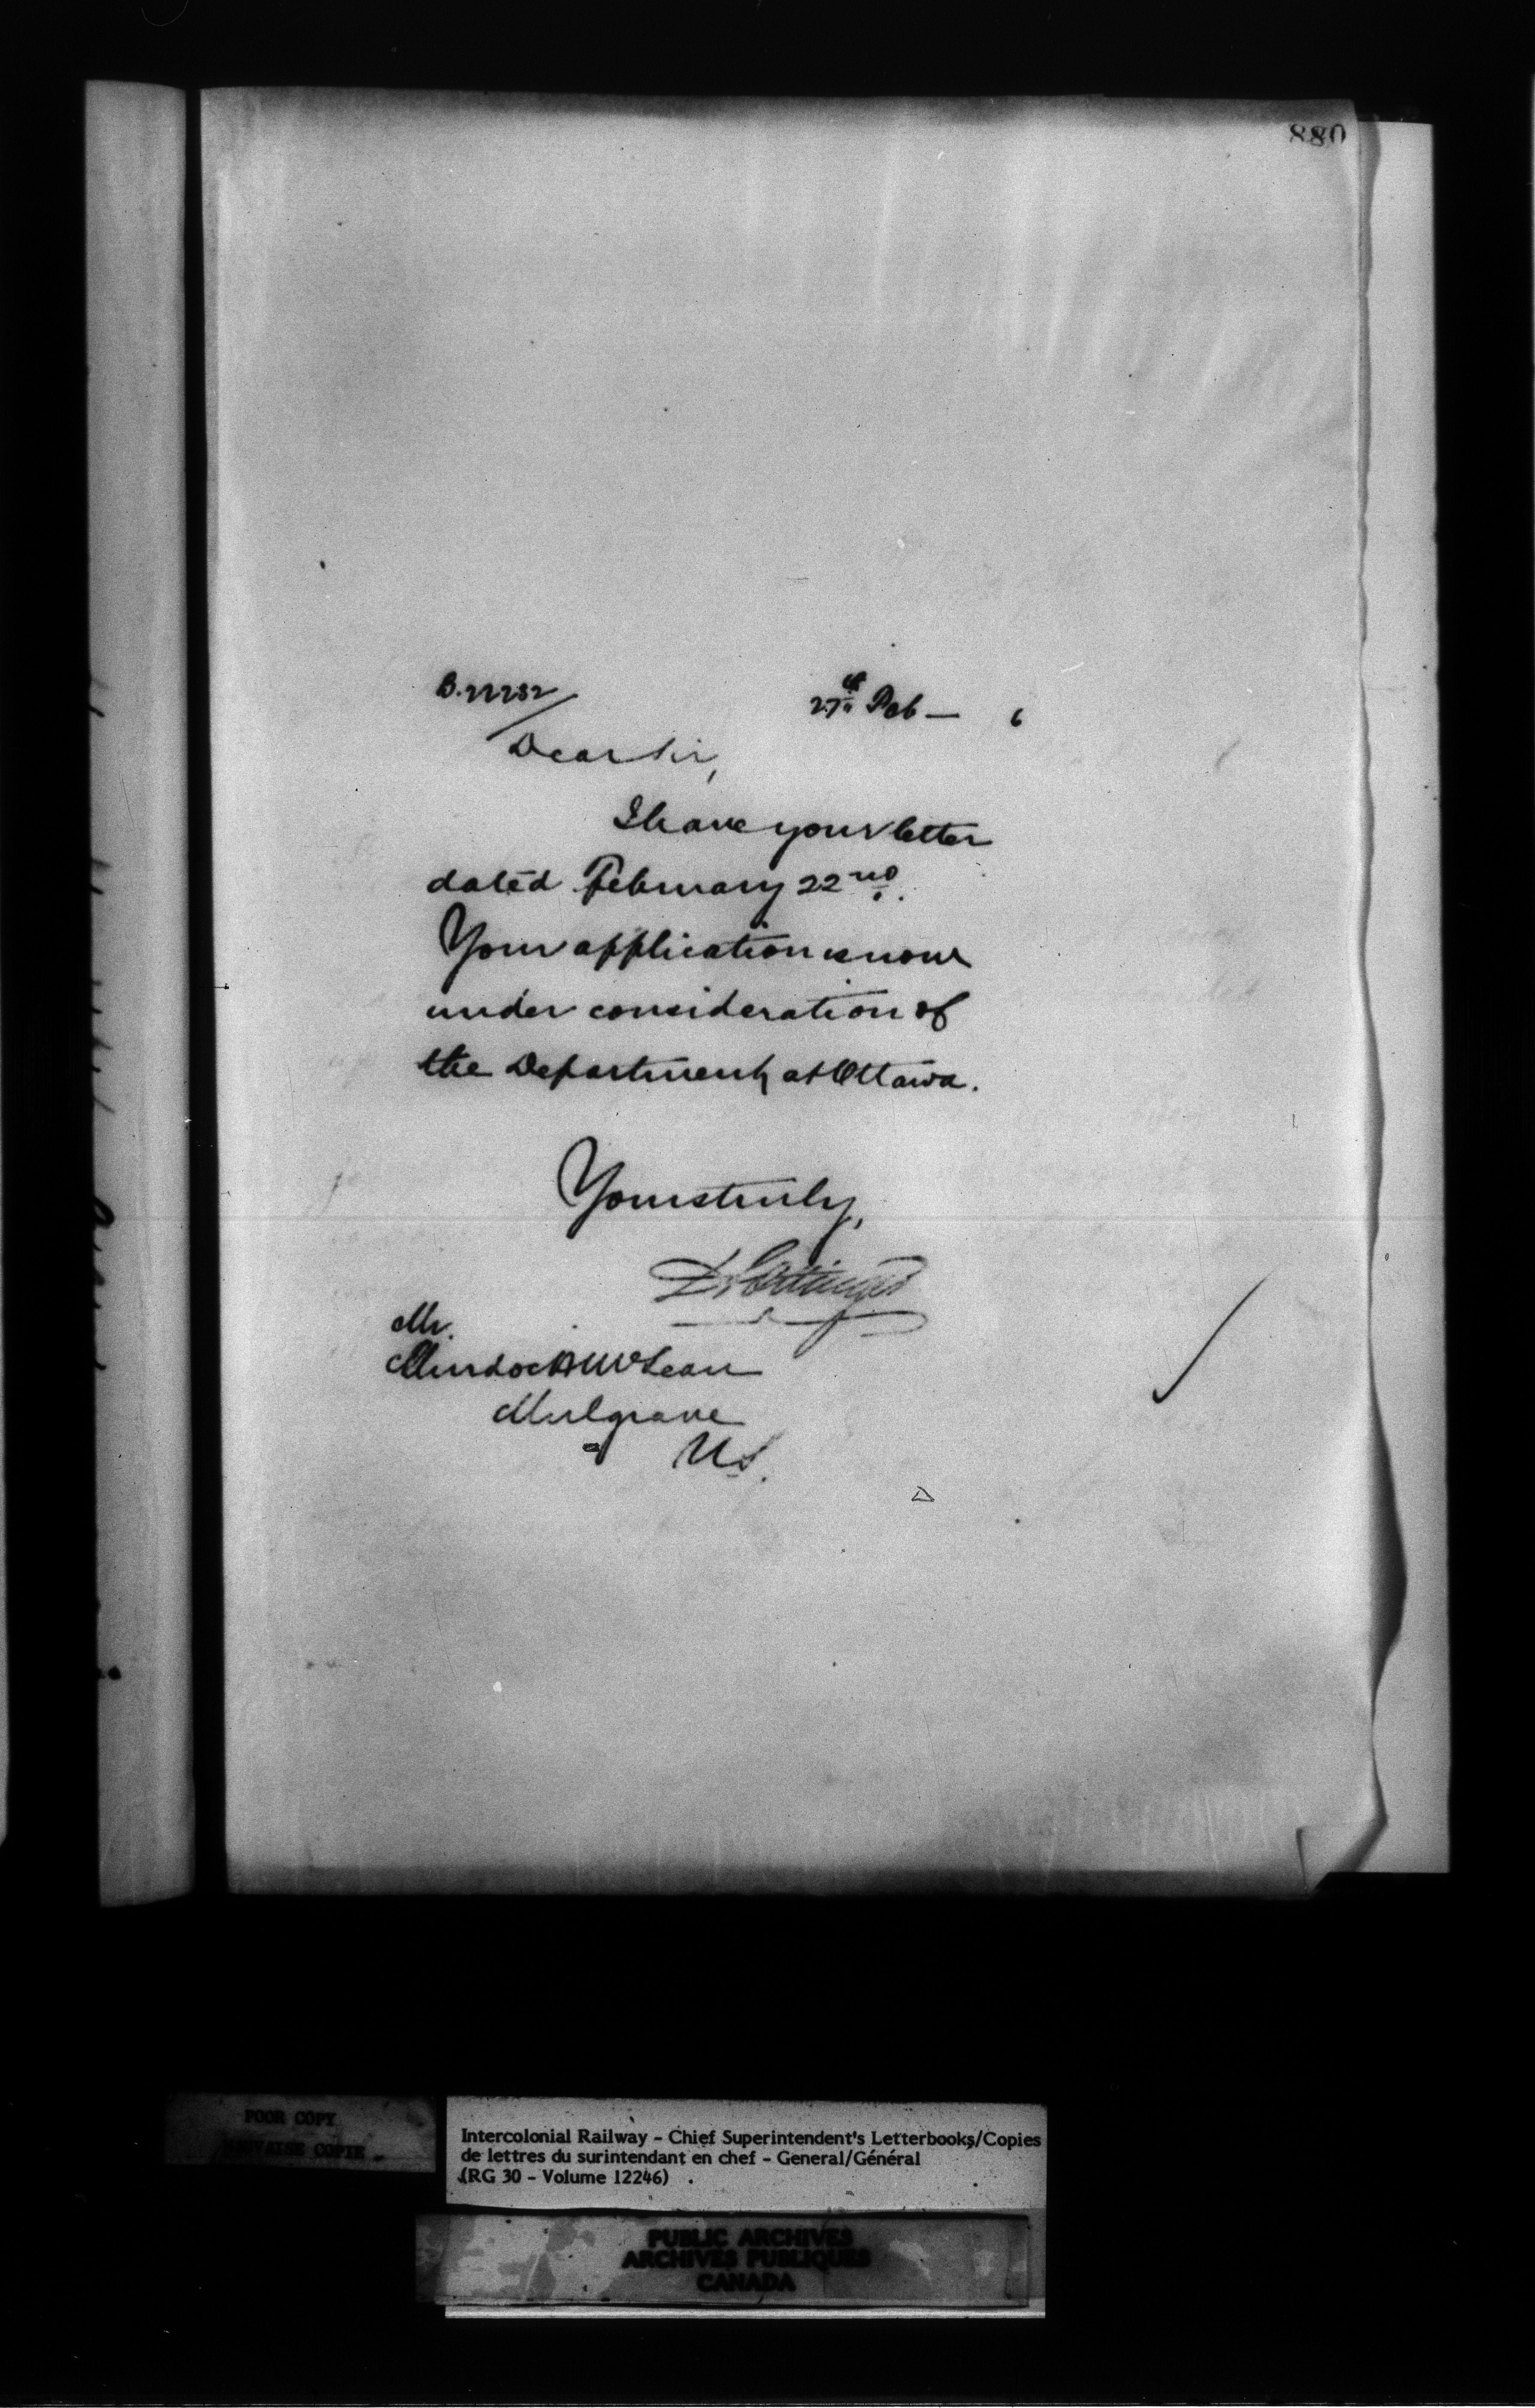 880
B.22232
27th Feb — 6
Dear Sir,
I have your letter
dated February 22nd.
Your application is now
under consideration of
the Department at Ottawa.
Yours truly,
D. Pottinger
Mr.
Murdoch McLean
Mulgrave
N.S.
POOR COPY
MAUVAISE COPIE
Intercolonial Railway - Chief Superintendent's Letterbooks/Copies
de lettres du surintendant en chef - General/Général
(RG 30 - Volume 12246)
PUBLIC ARCHIVES
ARCHIVES PUBLIQUES
CANADA